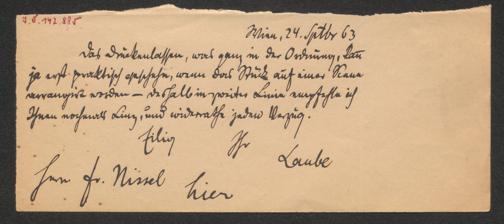 J. N. 142.885
Wien, 24. Sptbr 63
Das Druckenlassen, was ganz in der Ordnung, kann
ja erst praktisch geschehen, wenn das Stück auf einer Scene
arrangirt worden – deshalb in zweiter Linie empfehle ich
Ihnen nochmals Linz, und widerrathe jeden Verzug.
Eilig
Ihr
Laube
Herrn Fr. Nissel
hier